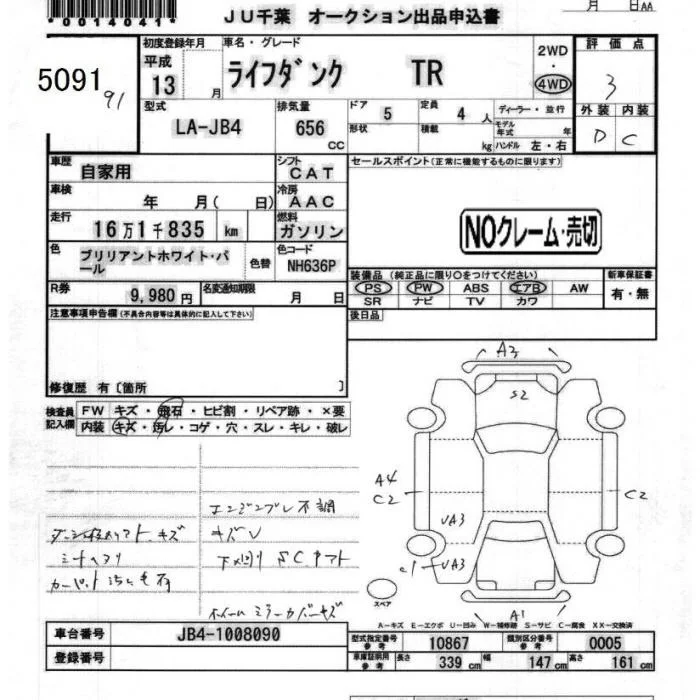 *0014041*
JU千葉 オークション出品申込書
月 日AA
5091
91
初度登録年月 車名・グレード
平成 13 月
ライフダンク TR
2WD ・ 4WD
評価点
3
外装 内装
D C
型式 LA-JB4
排気量 656 CC
ドア 5 定員 4 人 ディーラー・並行
形状 積載 kg モデル年式 年
ハンドル 左・右
車歴 自家用
シフト CAT
車検 年 月( 日)
冷房 AAC
走行 16万1千835 km
燃料 ガソリン
色 ブリリアントホワイト・パール
色替
色コード NH636P
R券 9,980円 名変通知期限 月 日
セールスポイント(正常に機能するものに限ります)
NOクレーム・売切
装備品 (純正品に限り○をつけてください) 新車保証書
PS PW ABS エアB AW 有・無
SR ナビ TV カワ
後日品
注意事項申告欄(不具合内容等は具体的に記入して下さい)
修復歴 有〔箇所 〕
検査員記入欄
FW キズ・飛石・ヒビ割・リペア跡・×要
内装 キズ・汚レ・コゲ・穴・スレ・キレ・破レ
エンジンブレ不調
キズV
下廻り SC
シートヘタリ
カーペット
ホイール ミラーカバーキズ
A3
S2
A4
C2
C2
UA3
C1
UA3
A1
スペア
A－キズ E－エクボ U－凹み W－補修跡 S－サビ C－腐食 XX－交換済
車台番号 JB4-1008090
登録番号
型式指定番号 参考 10867 類別区分番号 参考 0005
車庫証明用 参考 長さ 339 cm 幅 147 cm 高さ 161 cm